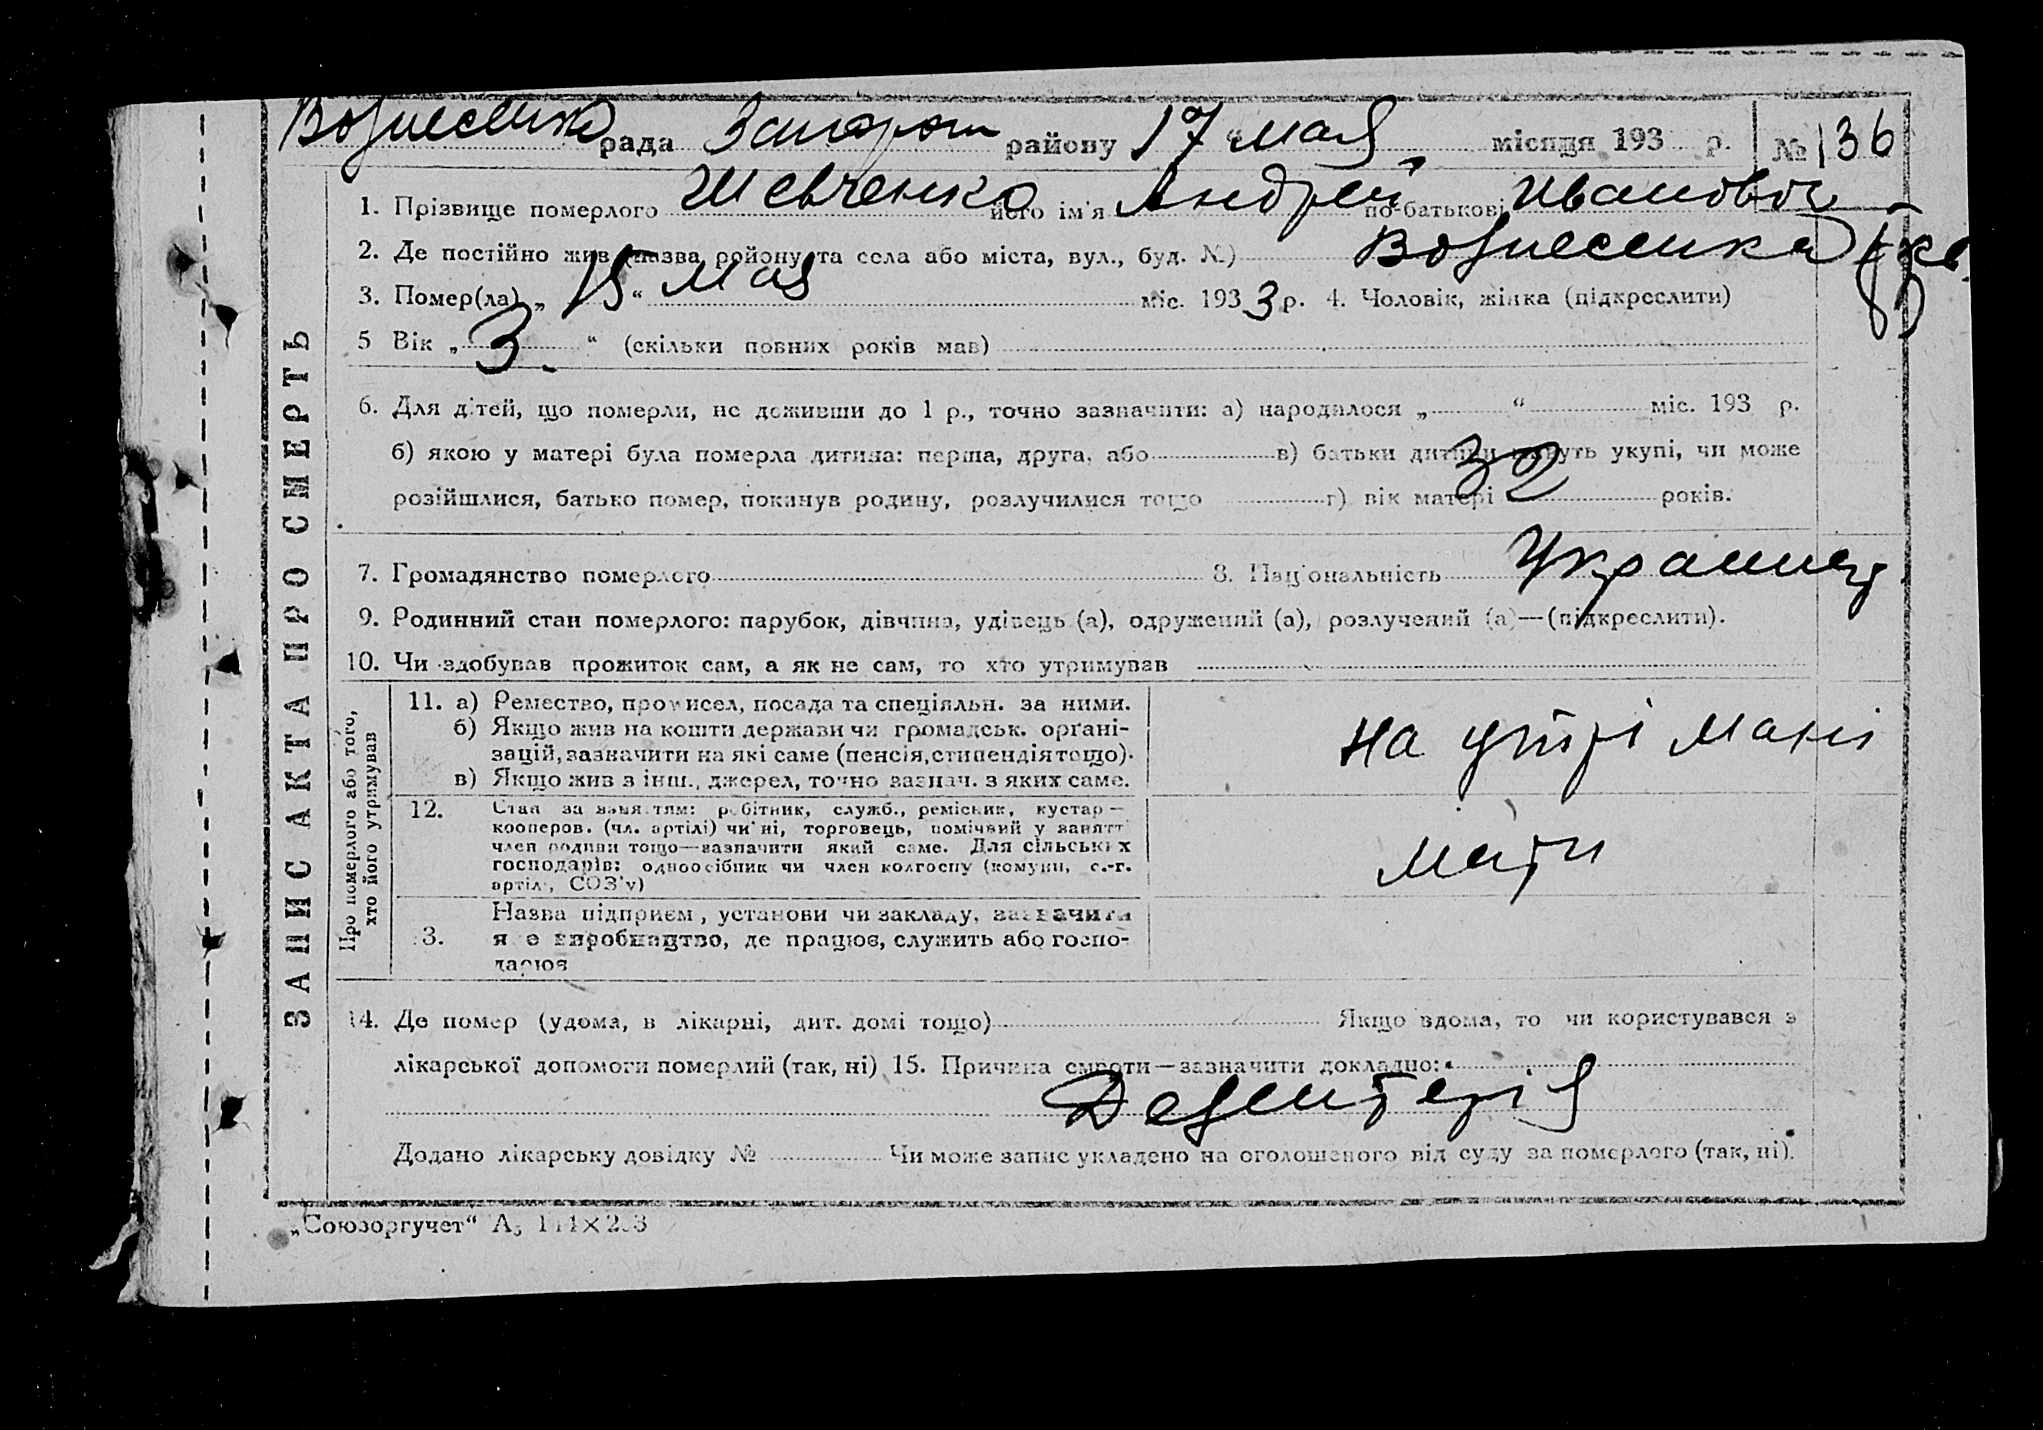 Вознесенка рада Запорож району 17 „ мая місяця 193 р. № 136
1. Прізвище померлого Шевченко його ім'я Андрей по-батькові Иванович
2. Де постійно жив (назва району та села або міста, вул., буд. №) Вознесенка
3. Помер(ла) „ 15 “ мая міс. 1933 р. 4. Чоловік, жінка (підкреслити)
5 Вік „ 3. “ (скільки повних років мав)
6. Для дітей, що померли, не доживши до 1 р., точно зазначити: а) народилося „ “ міс. 193 р.
б) якою у матері була померла дитина: перша, друга, або в) батьки дитини живуть укупі, чи може
розійшлися, батько помер, покинув родину, розлучилися тощо г) вік матері 32 років.
7. Громадянство померлого 8. Національність Украинец
9. Родинний стан померлого: парубок, дівчина, удівець (а), одружений (а), розлучений (а)—(підкреслити).
10. Чи здобував прожиток сам, а як не сам, то хто утримував
ЗАПИС АКТА ПРО СМЕРТЬ
Про померлого або того, хто його утримував
11. а) Ремество, промисел, посада та спеціяльн. за ними.
б) Якщо жив на кошти держави чи громадськ. орґані-
зацій, зазначити на які саме (пенсія, стипендія тощо).
в) Якщо жив з інш., джерел, точно зазнач. з яких саме.
на утрі
12. Стан за заняттям: робітник, служб., реміскик, кустар—
кооперов. (чл. артілі) чи ні, торговець, помічний у занятті
член родини тощо—зазначити який саме. Для сільських
господарів: одноосібник чи член колгоспу (комуни, с.-г.
артілі, СОЗ'у)
мати
3. Назва підприєм, установи чи закладу, зазначити
яке виробництво, де працює, служить або госпо-
дарює
14. Де помер (удома, в лікарні, дит. домі тощо) Якщо вдома, то чи користувався з
лікарської допомоги померлий (так, ні) 15. Причина смерти—зазначити докладно:
Дезентерія
Додано лікарську довідку № Чи може запис укладено на оголошеного від суду за померлого (так, ні).
„Союзоргучет“